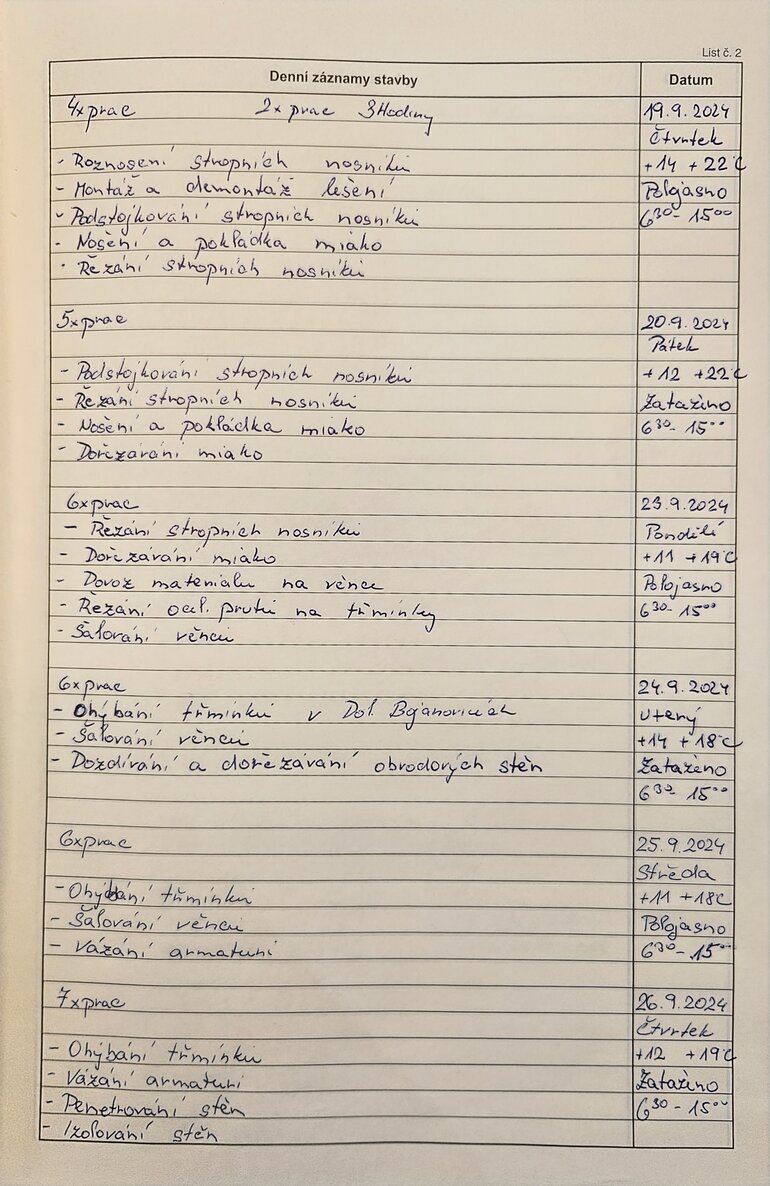 List č. 2
Denní záznamy stavby Datum
4xprac 2xprac 3Hodiny 19.9.2024
Čtvrtek
- Roznosení stropních nosníků +14 +22°C
- Montáž a demontáž lešení Polojasno
- Podstojkování stropních nosníků 6³⁰- 15⁰⁰
- Nošení a pokládka miako
- Řezání stropních nosníků
5xprac 20.9.2024
Pátek
- Podstojkování stropních nosníků +12 +22°C
- Řezání stropních nosníků Zataženo
- Nošení a pokládka miako 6³⁰- 15⁰⁰
- Dořezávání miako
6xprac 23.9.2024
- Řezání stropních nosníků Pondělí
- Dořezávání miako +11 +19°C
- Dovoz materialu na věnce Polojasno
- Řezání ocel. prutů na třmínky 6³⁰- 15⁰⁰
- Šalování věnců
6xprac 24.9.2024
- Ohýbání třmínků v Dol. Bojanovicích Uterý
- Šalování věnců +14 +18°C
- Dozdívání a dořezávání obvodových stěn Zataženo
6³⁰- 15⁰⁰
6xprac 25.9.2024
Středa
- Ohýbání třmínků +11 +18°C
- Šalování věnců Polojasno
- Vázání armatur 6³⁰- 15⁰⁰
7xprac 26.9.2024
Čtvrtek
- Ohýbání třmínků +12 +19°C
- Vázání armatur Zataženo
- Penetrování stěn 6³⁰- 15⁰⁰
- Izolování stěn